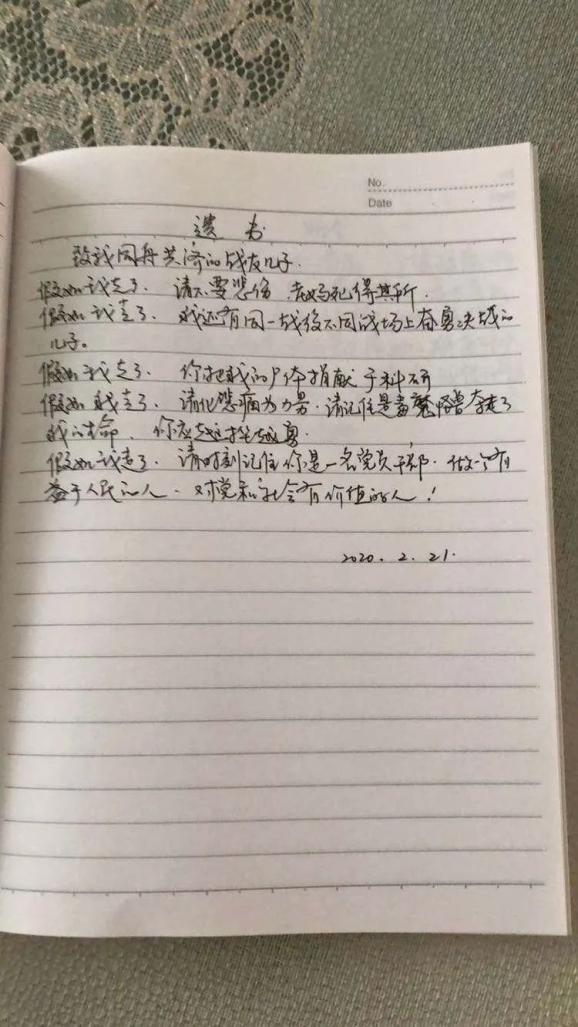 No.
Date
遗书
致我同舟共济的战友儿子.
假如我走了. 请不要悲伤 老妈死得其所.
假如我走了. 我还有同一战役不同战场上奋勇决战的
儿子。
假如我走了. 你把我的尸体捐献于科研
假如我走了. 请化悲痛为力量. 请记住是毒魔怪兽夺走了
我的生命. 你应越挫越勇.
假如我走了. 请时刻记住你是一名党员干部. 做一个有
益于人民的人. 对党和社会有价值的人!
2020.2.21.